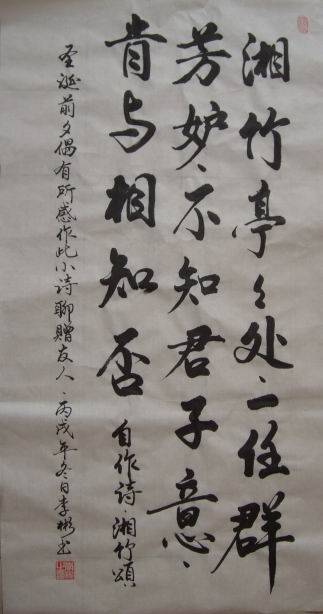 湘竹亭々处、一住群
芳妒、不知君子意、
肯与相知否 自作诗·湘竹頌
圣诞前夕偶有所感作此小诗聊赠友人、丙戌年冬日李彬书